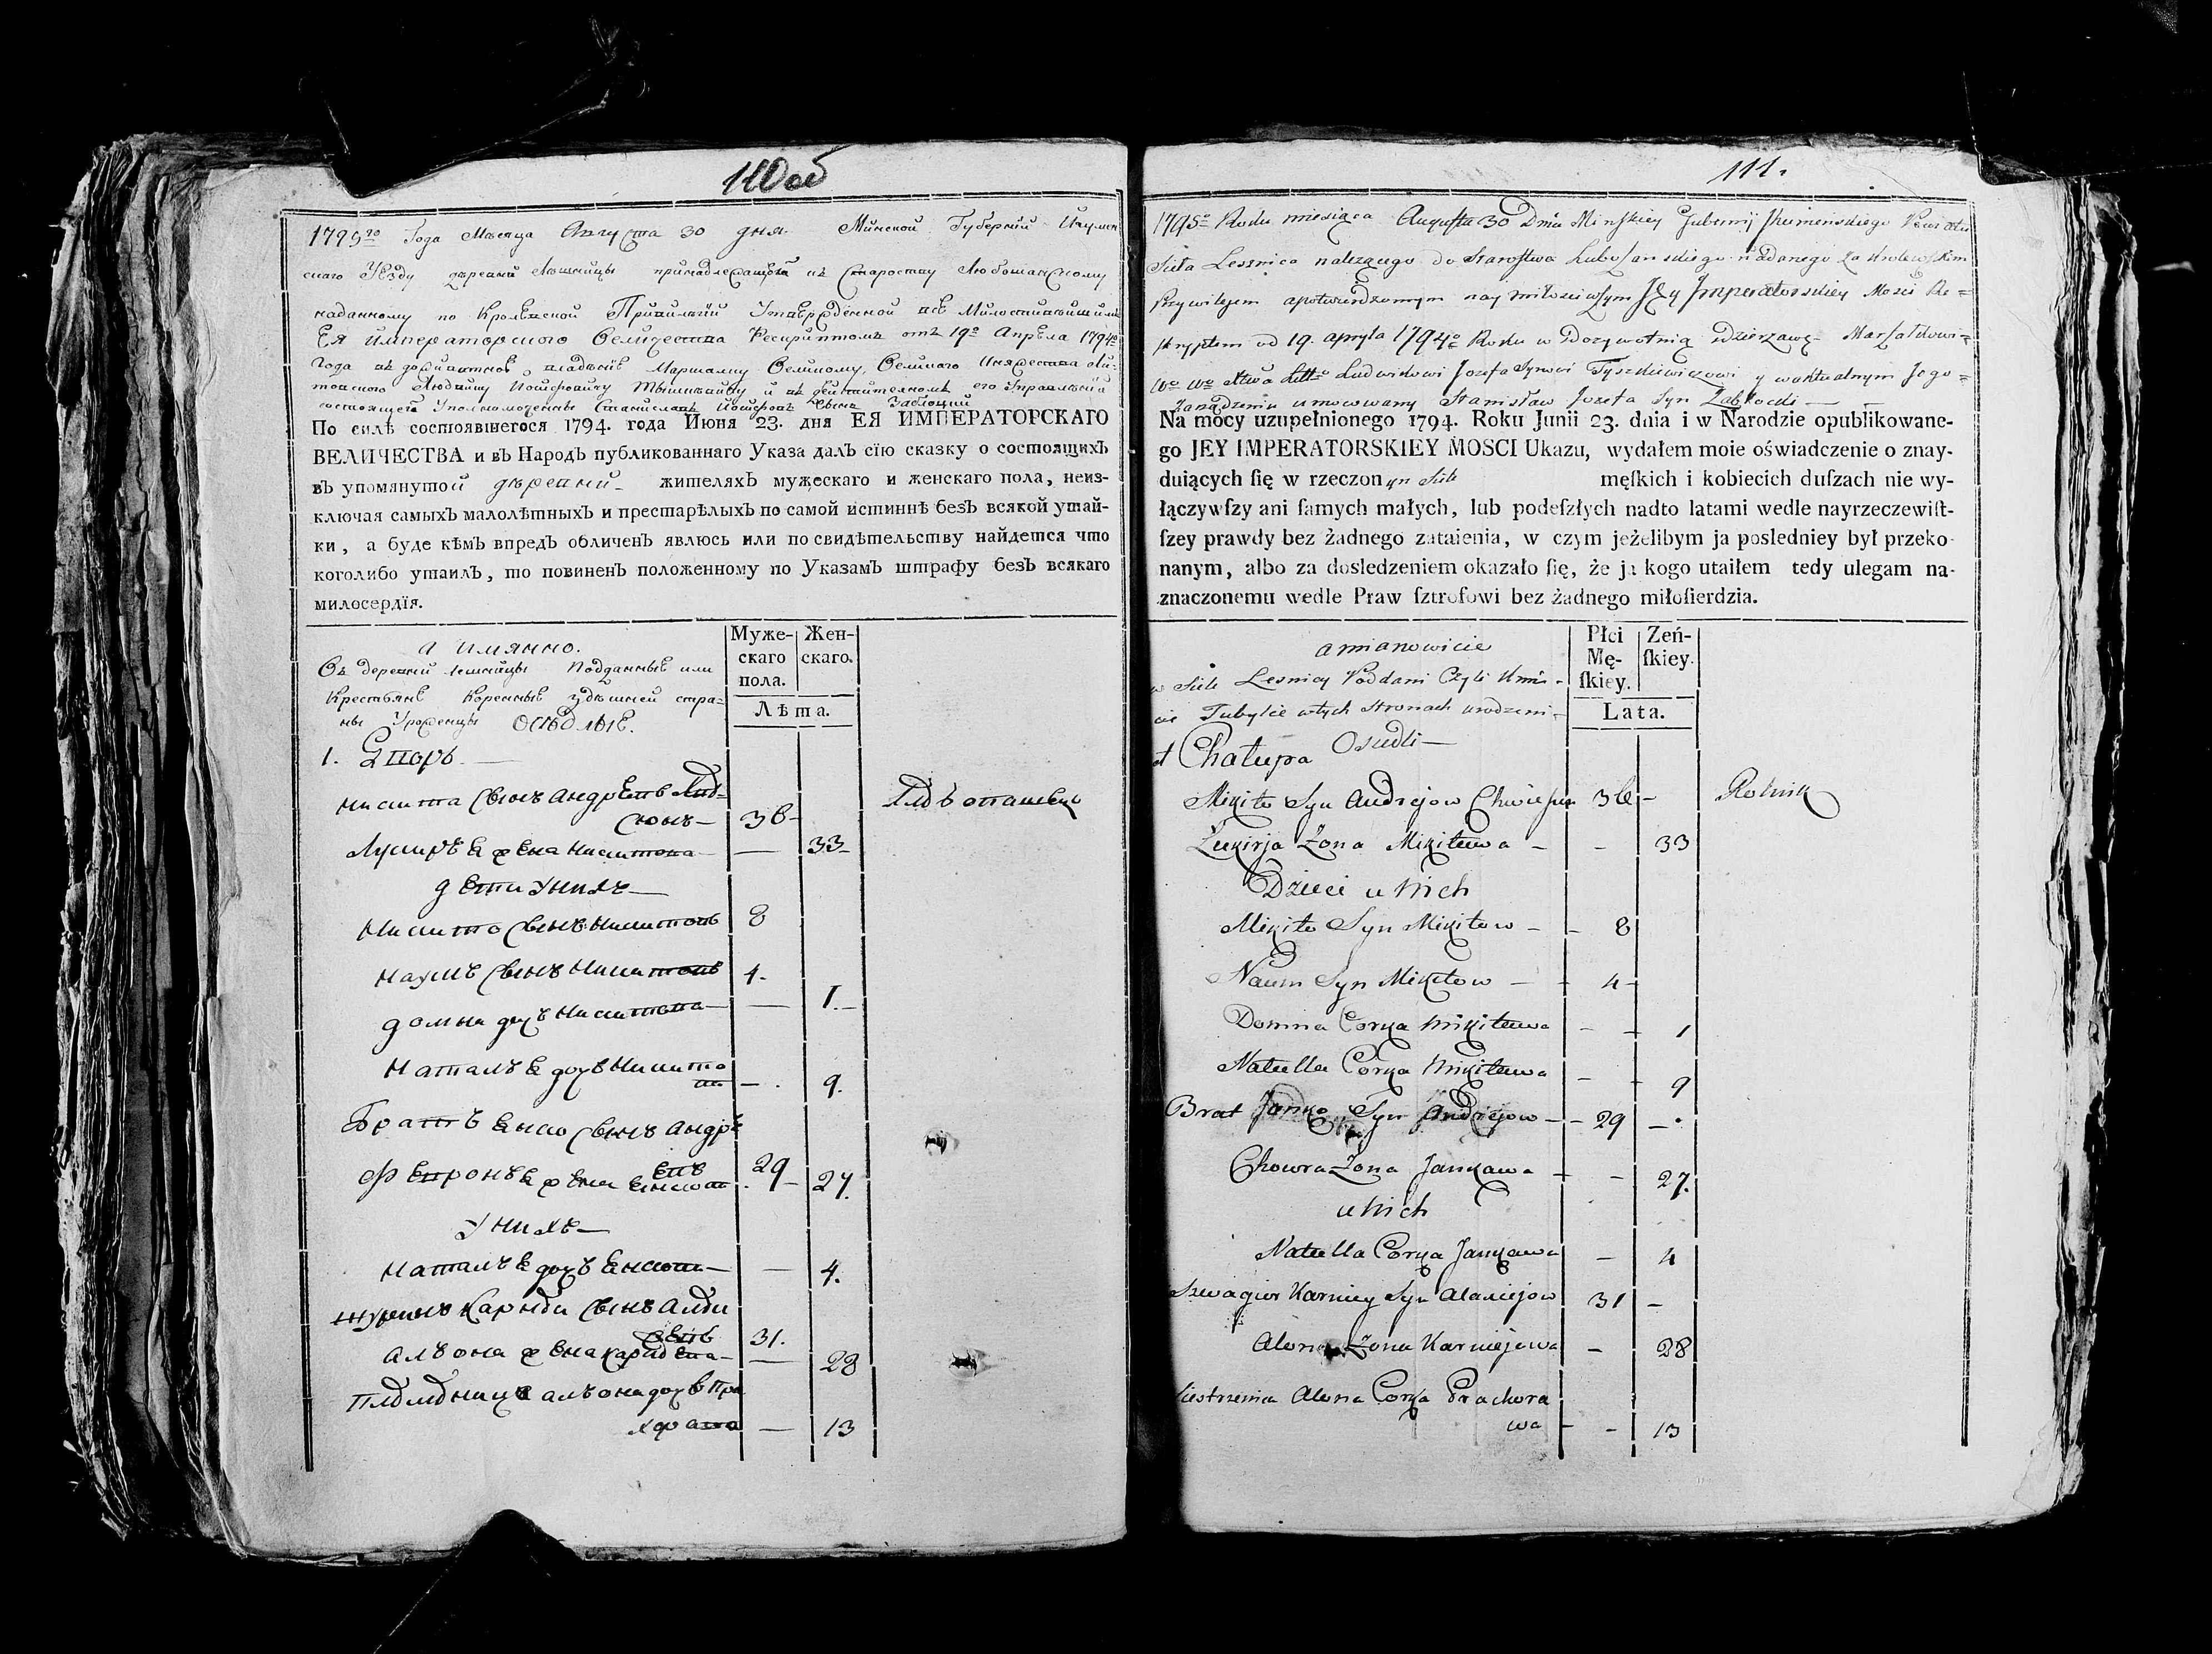 110 об
1795го Года Месяца Августа 30 дня. Минской Губернии Игумен
скаго Уезду деревни Лешницы принадлежащей къ Староству Любошанскому
наданному по Кролевской Привилегии Утвержденной всемилостивейшимъ
Ея Императорскаго Величества Рескриптомъ отъ 19го Апреля 1794го
Года въ доживотное владение Маршалку Великому Великаго Княжества Ли-
товскаго Людвику Иосифовичу Тышкевичу и въ действителномъ его Управлении
состоящей Уполномоченны Станиславъ Иосифовъ Сынъ Заблоцкий
По силѣ состоявшегося 1794. года Июня 23. дня ЕЯ ИМПЕРАТОРСКАГО
ВЕЛИЧЕСТВА и въ Народѣ публикованнаго Указа далъ сїю сказку о состоящихъ
въ упомянутой деревни жителяхъ мужескаго и женскаго пола, неиз-
ключая самыхъ малолѣтныхъ и престарѣлыхъ по самой истиннѣ безъ всякой утай-
ки, а буде кѣмъ впредъ обличенъ явлюсь или по свидѣтельству найдется что
коголибо утаилъ, то повиненъ положенному по Указамъ штрафу безъ всякаго
милосердїя.
а имянно.
Муже-скаго пола. Жен-скаго.
Лѣта.
Въ деревни Лешницы Подданные или
Крестьяне Коренные здешней стра-
ны Уроженцы
1. Дворъ.
Никита Сынъ Андреевъ
36
33
дети у нихъ
Никита Сынъ Никитовъ 8
Наумъ Сынъ Никитовъ 4.
домна дочъ Никитова — 1.
Наталъ дочъ Никито
ва — 9.
Братъ Сынъ Андре
евъ 29
жена 27.
у нихъ
Наталъ дочъ — 4.
Сынъ
31.
алъона жена — 28
алъона дочъ Про
хорова — 13
111.
1795o Roku miesiąca Augusta 30 Dnia Minskiey Gubernij Ihumenskiego Powiatu
Sieła Lesznica należącego do Starostwa Lubosanskiego nadanego za Krolewskim
Przywilejem a potwierdzonym naymiłosciwszym Jey Imperatorskiey Mosci Re=
skryptem od 19. apryla 1794o Roku w Dożywotnią Dzierżawę Marszałkowi=
Wo Wo Xtwa Litto Ludwikowi Jozefa Synowi Tyszkiewiczowi y w aktualnym Jego=
Zarządzeniu umocowany Stanisław Jozefa Syn Zabłocki —
Na mocy uzupełnionego 1794. Roku Junii 23. dnia i w Narodzie opublikowane-
go JEY IMPERATORSKIEY MOSCI Ukazu, wydałem moie oświadczenie o znay-
duiących ſię w rzeczonym Siele męſkich i kobiecich duſzach nie wy-
łączywſzy ani ſamych małych, lub podeſzłych nadto latami wedle nayrzeczewiſt-
ſzey prawdy bez żadnego zataienia, w czym jeżelibym ja posledniey był przeko-
nanym, albo za dosledzeniem okazało ſię, że ja kogo utaiłem tedy ulegam na-
znaczonemu wedle Praw ſztrofowi bez żadnego miłoſierdzia.
a mianowicie
Płci Mę-ſkiey. Zeń-ſkiey.
Lata.
w Siele Lesnicy Poddani Czyli Kmie-
cie Tubylcie w tych Stronach urodzeni-
Osiedli —
Chałupa
Mikita Syn Andrejow 36 — Rolnik
Żona Mikitowa — — 33
Dzieci u Nich
Mikita Syn Mikitow — — 8
Naum Syn Mikitow — — 4 —
Domna Corka Mikitowa — — 1
Natalla Corka Mikitowa — — 9
Brat Janko Syn Andrejow — — 29 —
Chowra Żona Jankowa — — 27.
u Nich
Natalla Corka Jankowa — 4
Szwagier Karniey Syn 31 —
Alona Żona Karniejowa — 28
Siestrzenica Alona Corka Prachora
wa — — 13